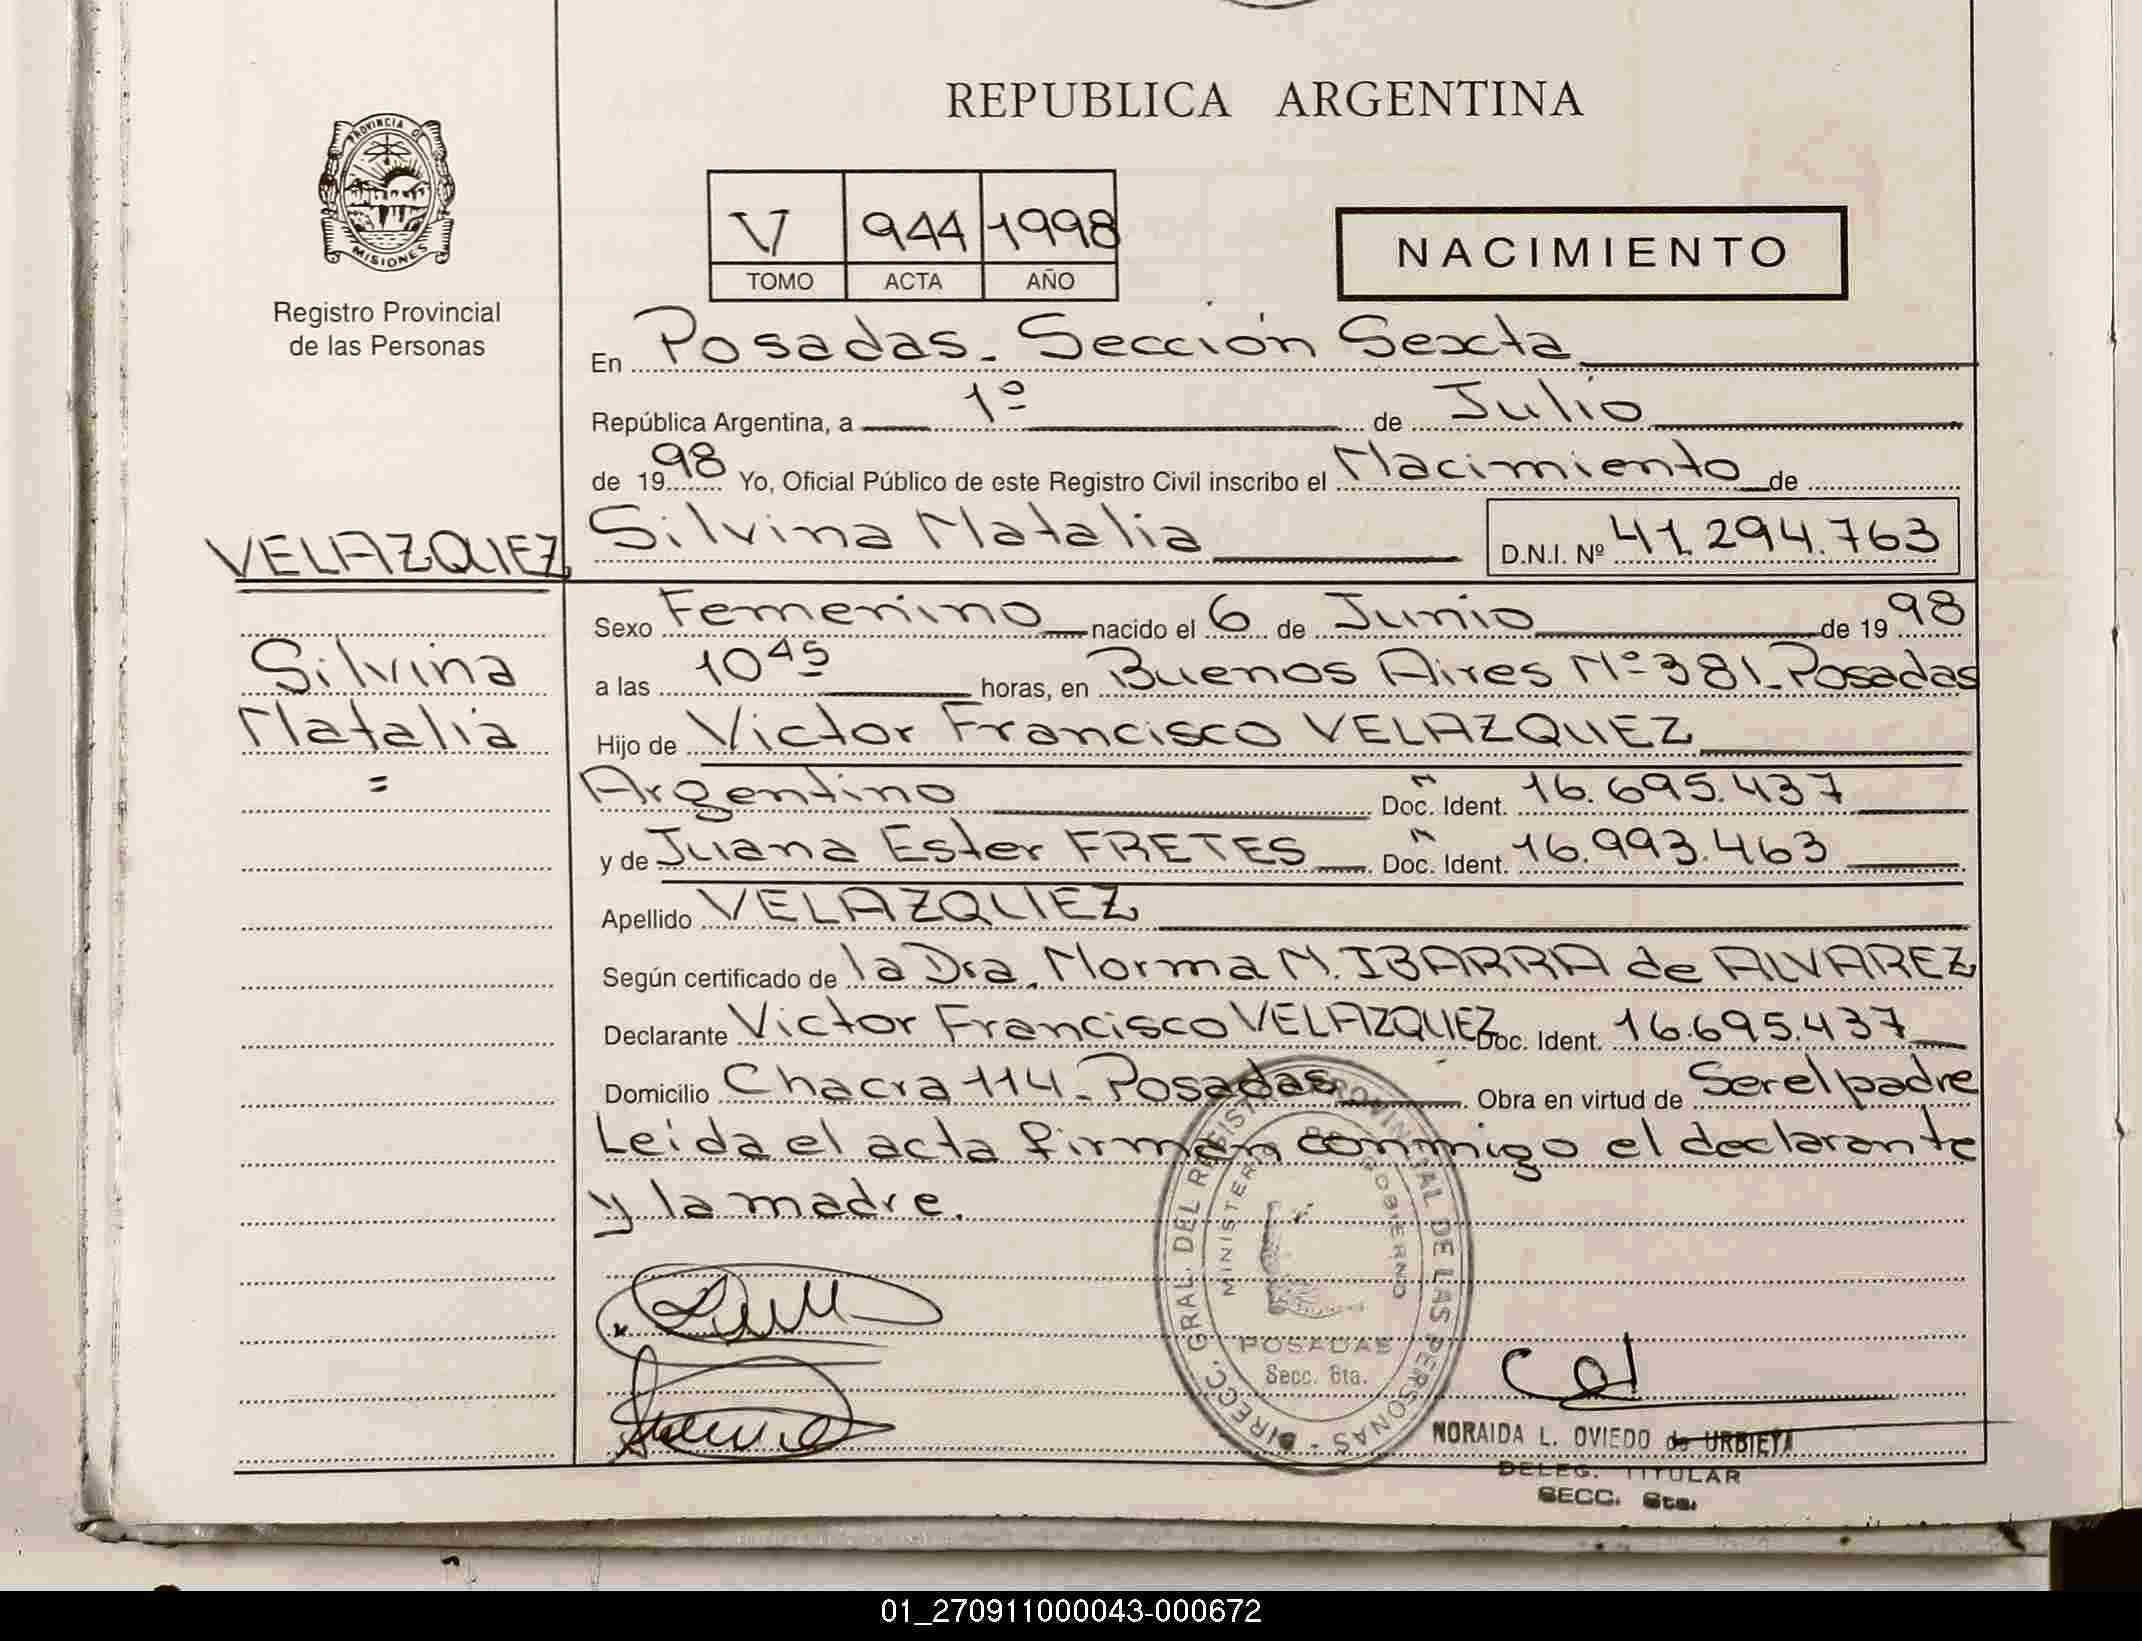 REPUBLICA ARGENTINA
PROVINCIA DE
MISIONES
Registro Provincial
de las Personas
V 944 1998
TOMO ACTA AÑO
NACIMIENTO
En Posadas - Sección Sexta
República Argentina, a 1º de Julio
de 1998 Yo, Oficial Público de este Registro Civil inscribo el Nacimiento de
Silvina Natalia D.N.I. Nº 41.294.763
VELAZQUEZ
Silvina
Natalia
=
Sexo Femenino nacido el 6 de Junio de 1998
a las 10 45 horas, en Buenos Aires Nº 381 - Posadas
Hijo de Victor Francisco VELAZQUEZ
Argentino Doc. Ident. 16.695.437
y de Juana Ester FRETES Doc. Ident. 16.993.463
Apellido VELAZQUEZ
Según certificado de la Dra. Norma N. IBARRA de ALVAREZ
Declarante Victor Francisco VELAZQUEZ Doc. Ident. 16.695.437
Domicilio Chacra 114 - Posadas Obra en virtud de Ser el padre
Leída el acta firman conmigo el declarante
y la madre.
DIRECC. GRAL. DEL REGIST. PROVINCIAL DE LAS PERSONAS -
MINISTERIO DE GOBIERNO
POSADAS
Secc. 6ta.
NORAIDA L. OVIEDO de URBIETA
DELEG. TITULAR
SECC. 6ta.
01_270911000043-000672